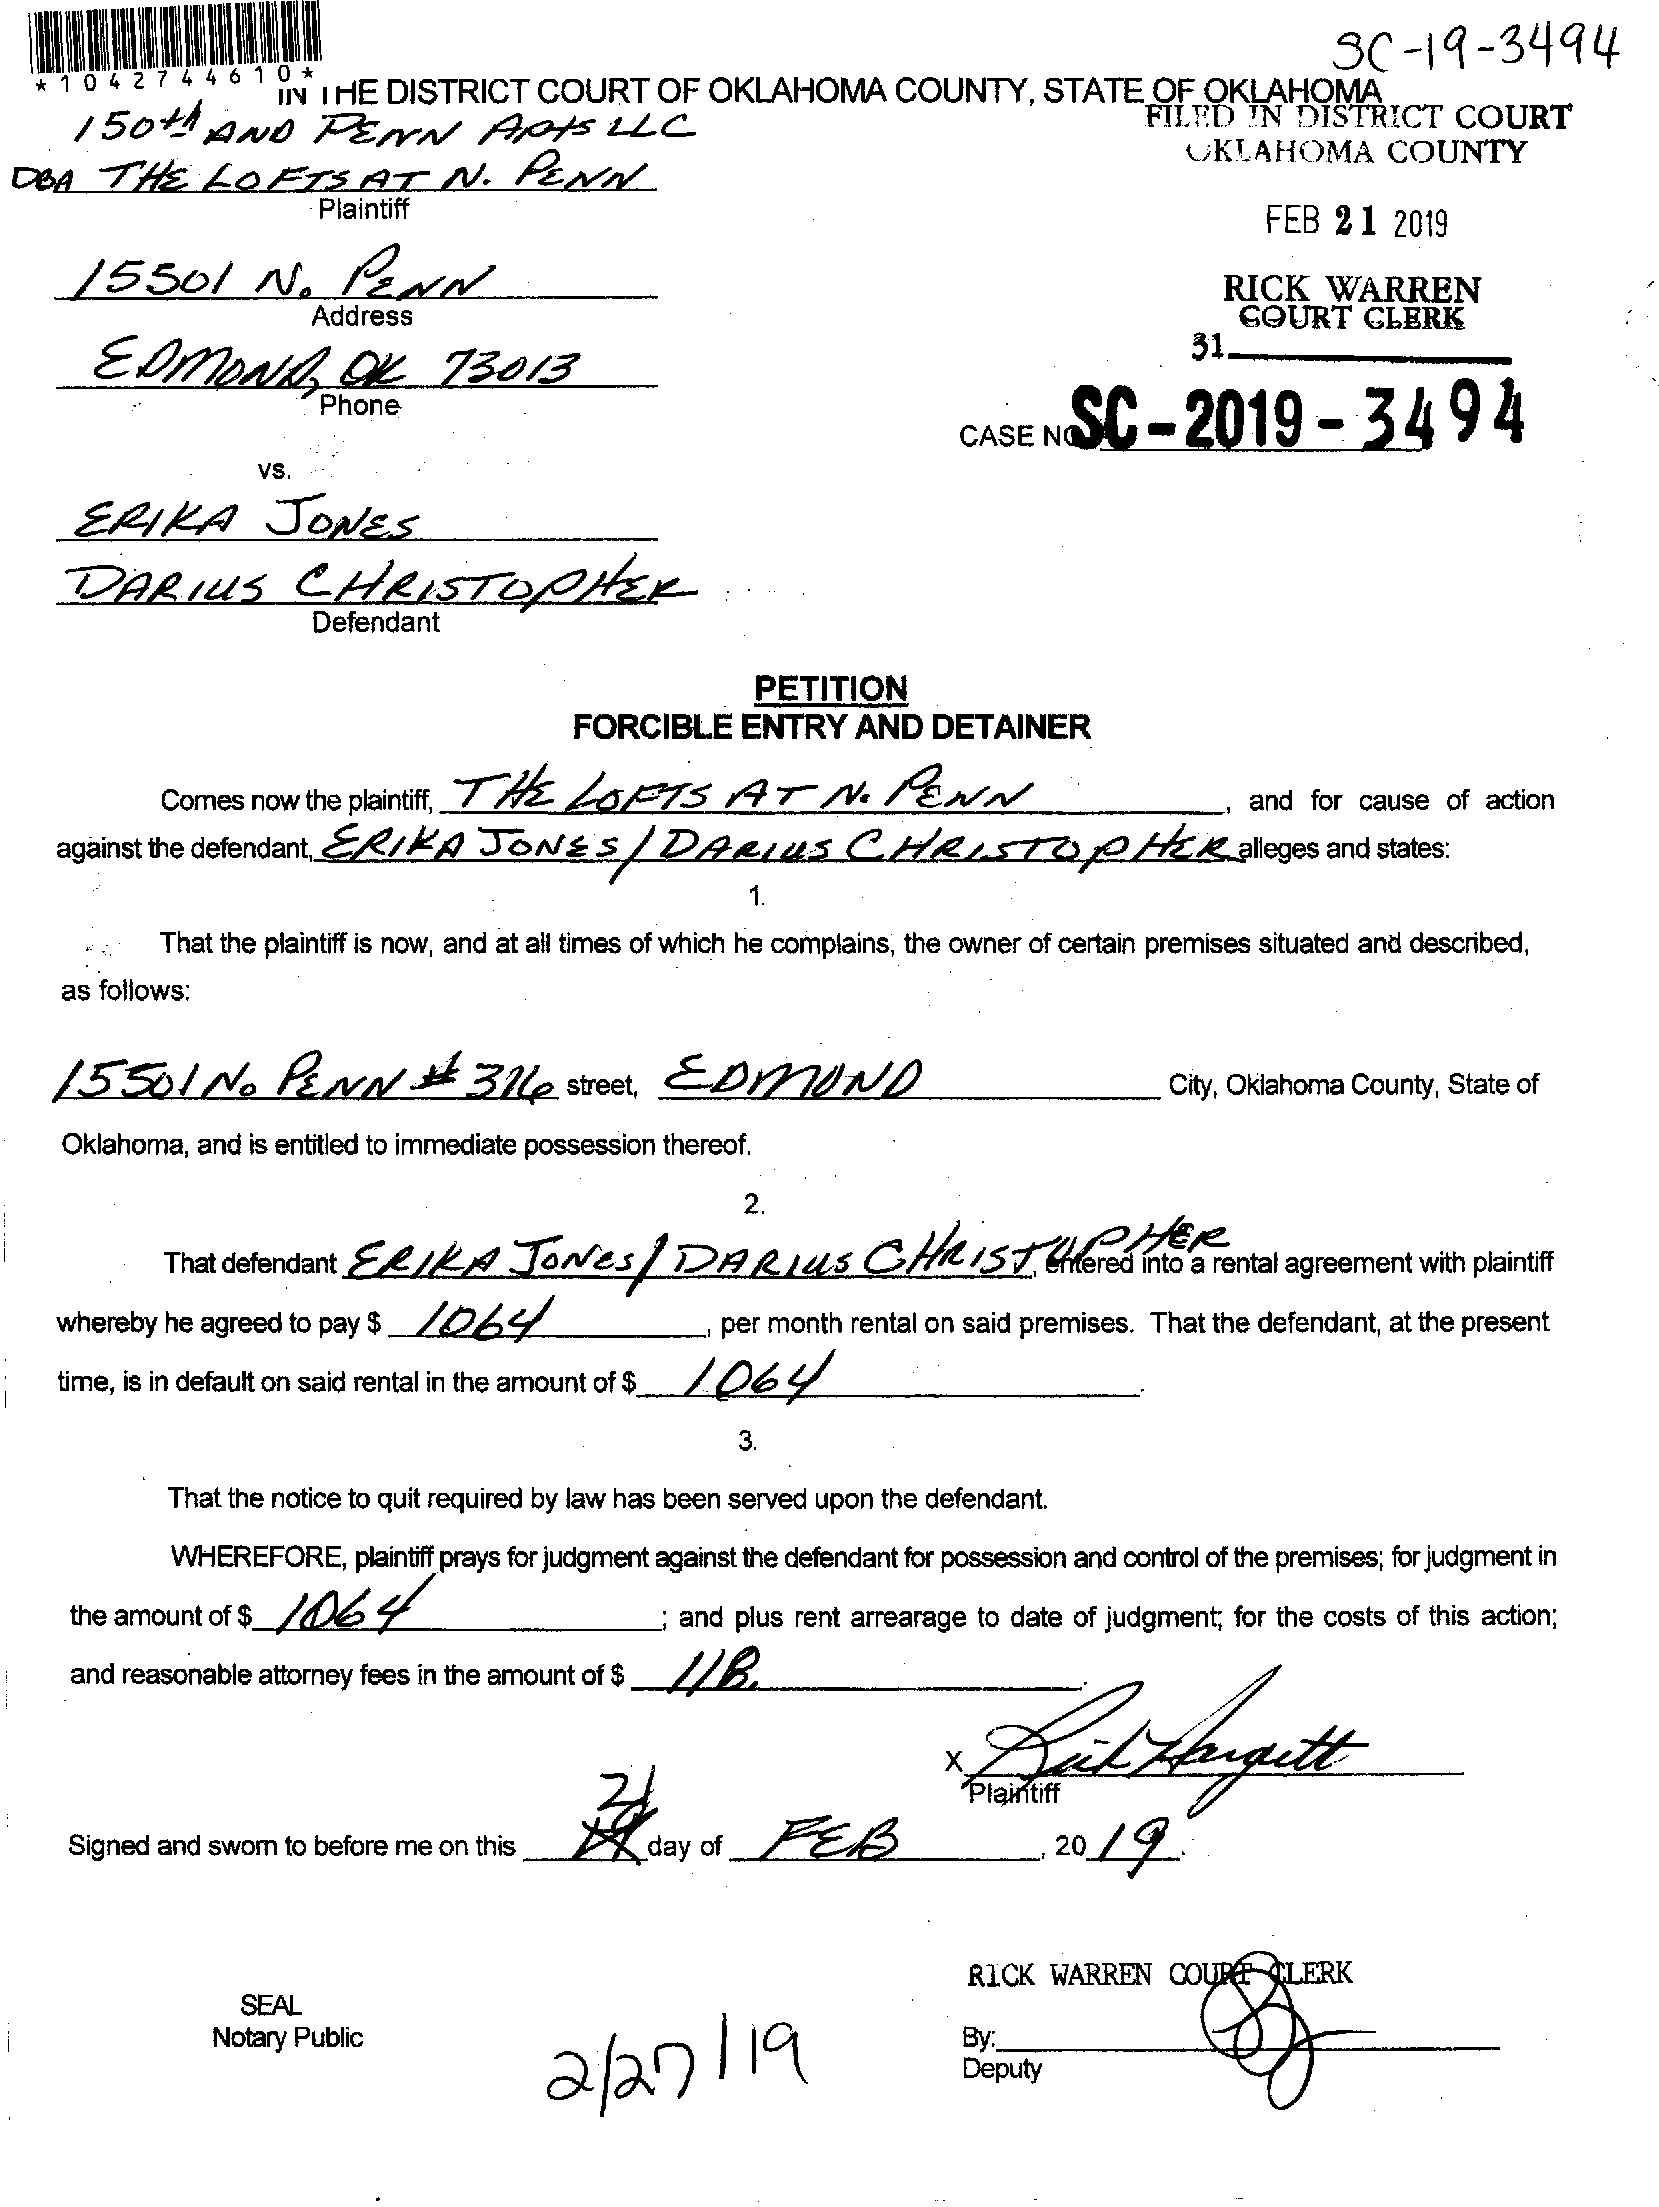 SC-19-3494
*1042744610*
IN THE DISTRICT COURT OF OKLAHOMA COUNTY, STATE OF OKLAHOMA
FILED IN DISTRICT COURT
OKLAHOMA COUNTY
150th AND PENN APTS LLC
DBA THE LOFTS AT N. PENN
Plaintiff
FEB 21 2019
15501 N. PENN
Address
RICK WARREN
COURT CLERK
31
EDMOND, OK 73013
Phone
CASE NO. SC-2019-3494
vs.
ERIKA JONES
DARIUS CHRISTOPHER
Defendant
PETITION
FORCIBLE ENTRY AND DETAINER
Comes now the plaintiff, THE LOFTS AT N. PENN, and for cause of action
against the defendant, ERIKA JONES/DARIUS CHRISTOPHER alleges and states:
1.
That the plaintiff is now, and at all times of which he complains, the owner of certain premises situated and described,
as follows:
15501 No PENN # 316 street, EDMOND City, Oklahoma County, State of
Oklahoma, and is entitled to immediate possession thereof.
2.
That defendant ERIKA JONES/DARIUS CHRISTOPHER, entered into a rental agreement with plaintiff
whereby he agreed to pay $ 1064, per month rental on said premises. That the defendant, at the present
time, is in default on said rental in the amount of $ 1064.
3.
That the notice to quit required by law has been served upon the defendant.
WHEREFORE, plaintiff prays for judgment against the defendant for possession and control of the premises; for judgment in
the amount of $ 1064; and plus rent arrearage to date of judgment; for the costs of this action;
and reasonable attorney fees in the amount of $
x Rick Hargett
Plaintiff
Signed and sworn to before me on this 21 day of FEB, 2019.
RICK WARREN COURT CLERK
SEAL
Notary Public
2/27/19
By:
Deputy